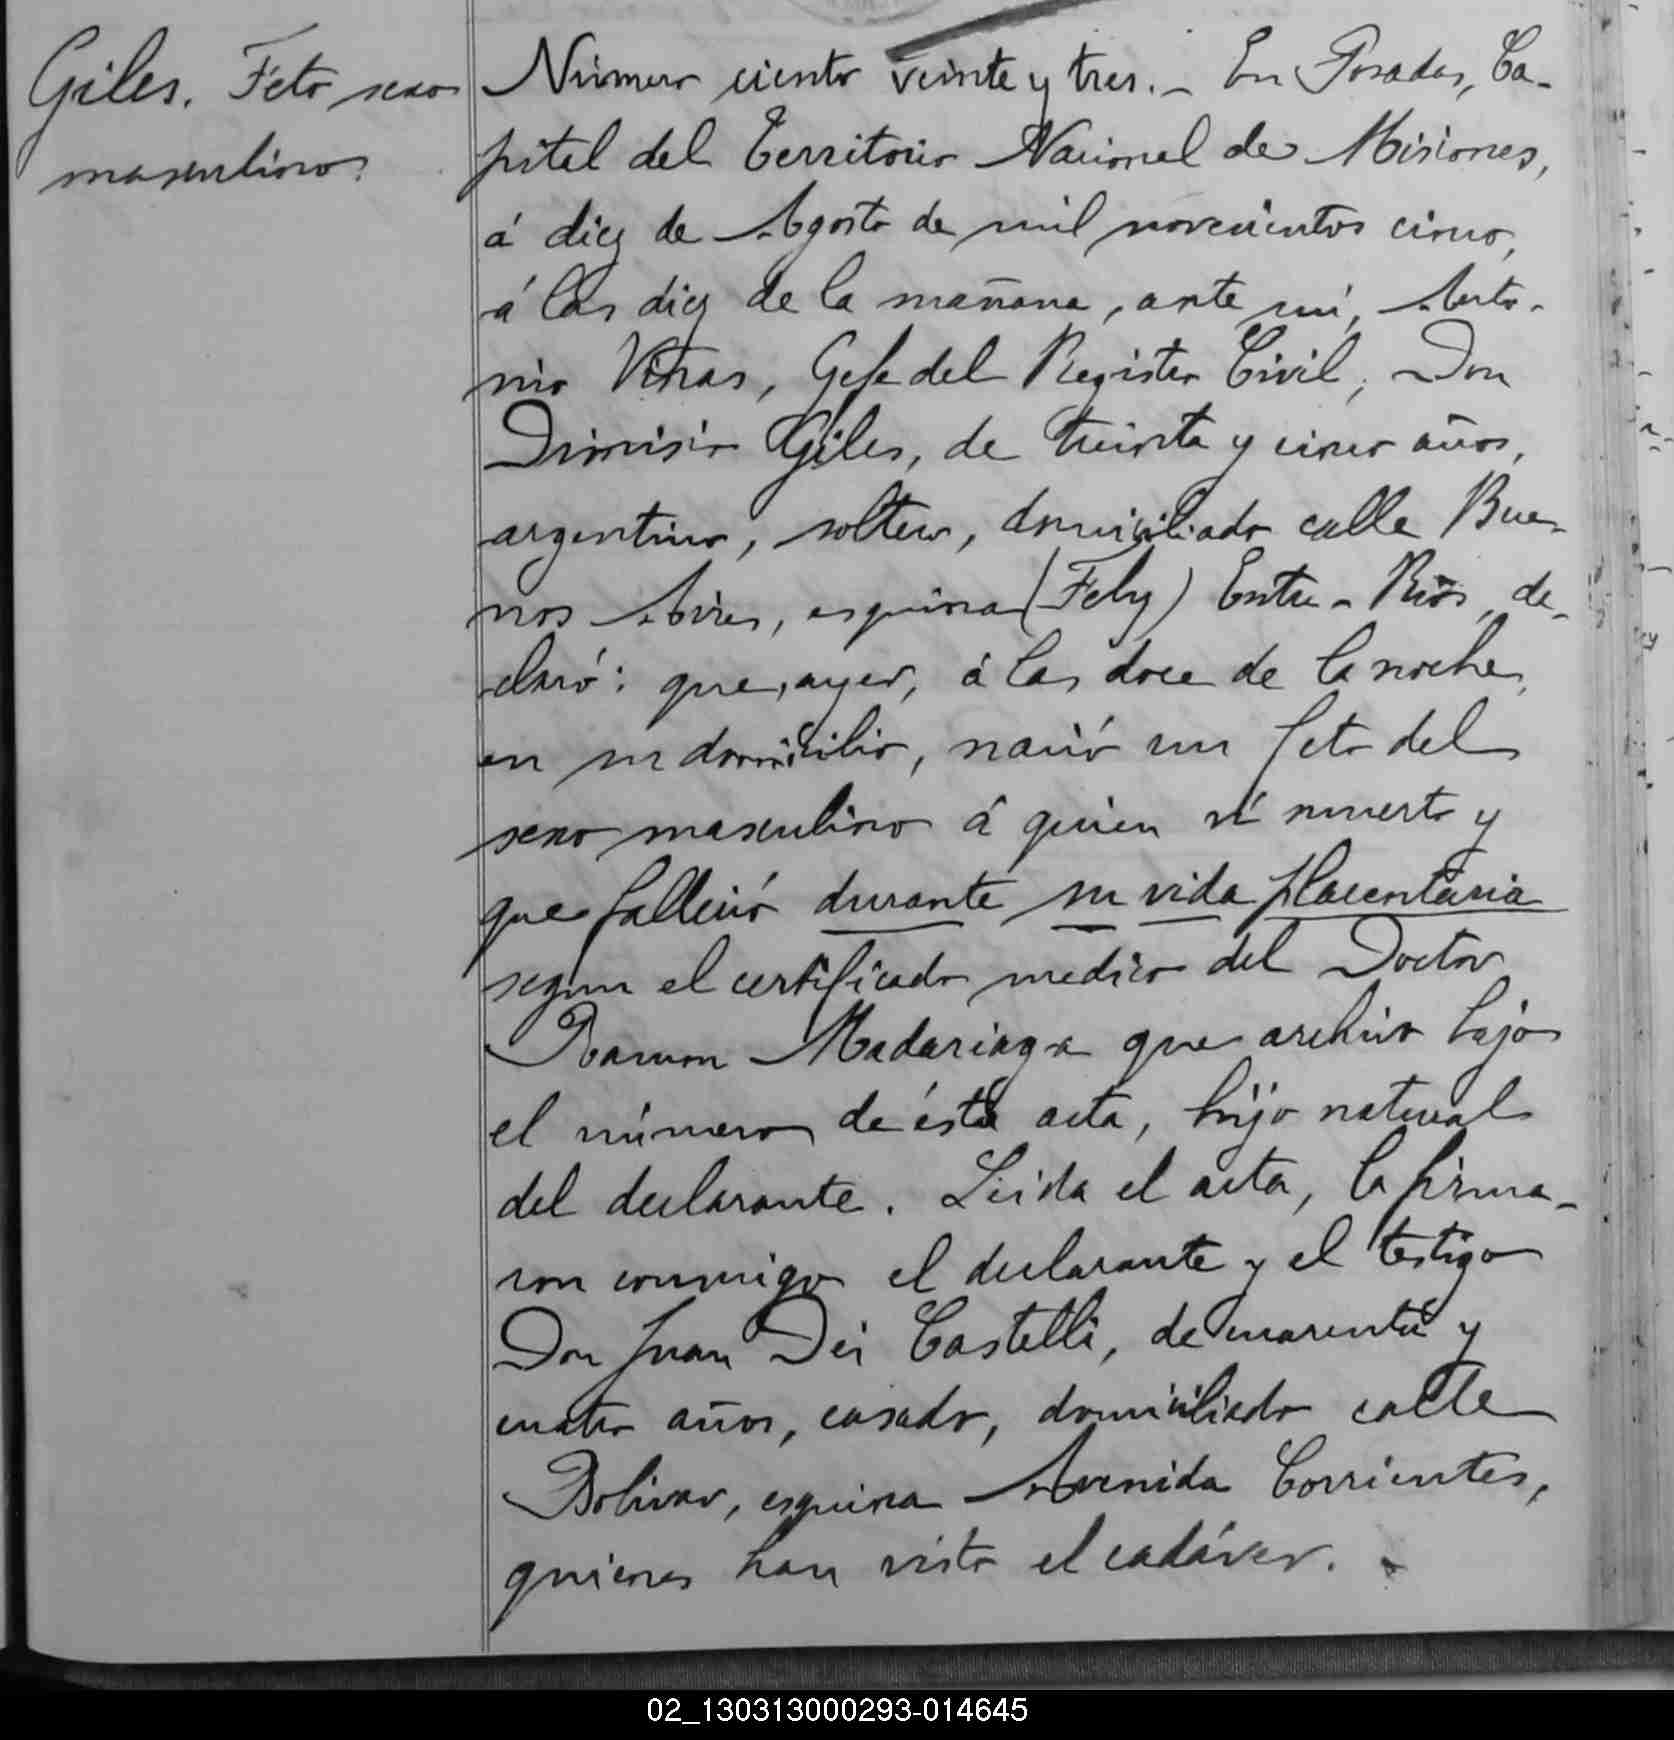 Giles. Feto sexo
masculino.
Número ciento veinte y tres.- En Posadas, Ca-
pital del Territorio Nacional de Misiones,
á diez de Agosto de mil novecientos cinco,
á las diez de la mañana, ante mí, Anto-
nio Viñas, Gefe del Registro Civil, Don
Dionisio Giles, de treinta y cinco años,
argentino, soltero, domiciliado calle Bue-
nos Aires, esquina (Fely) Entre-Rios, de-
claró: que, ayer, á las doce de la noche,
en su domicilio, nació un feto del
sexo masculino á quien ví muerto y
que falleció durante su vida placentaria
segun el certificado medico del Doctor
Ramon Madariaga que archivo bajo
el número de ésta acta, hijo natural
del declarante. Leida el acta, la firma-
ron conmigo el declarante y el testigo
Don Juan Dei Castelli, de cuarenta y
cuatro años, casado, domiciliado calle
Bolivar, esquina Avenida Corrientes,
quienes han visto el cadáver.
02_130313000293-014645